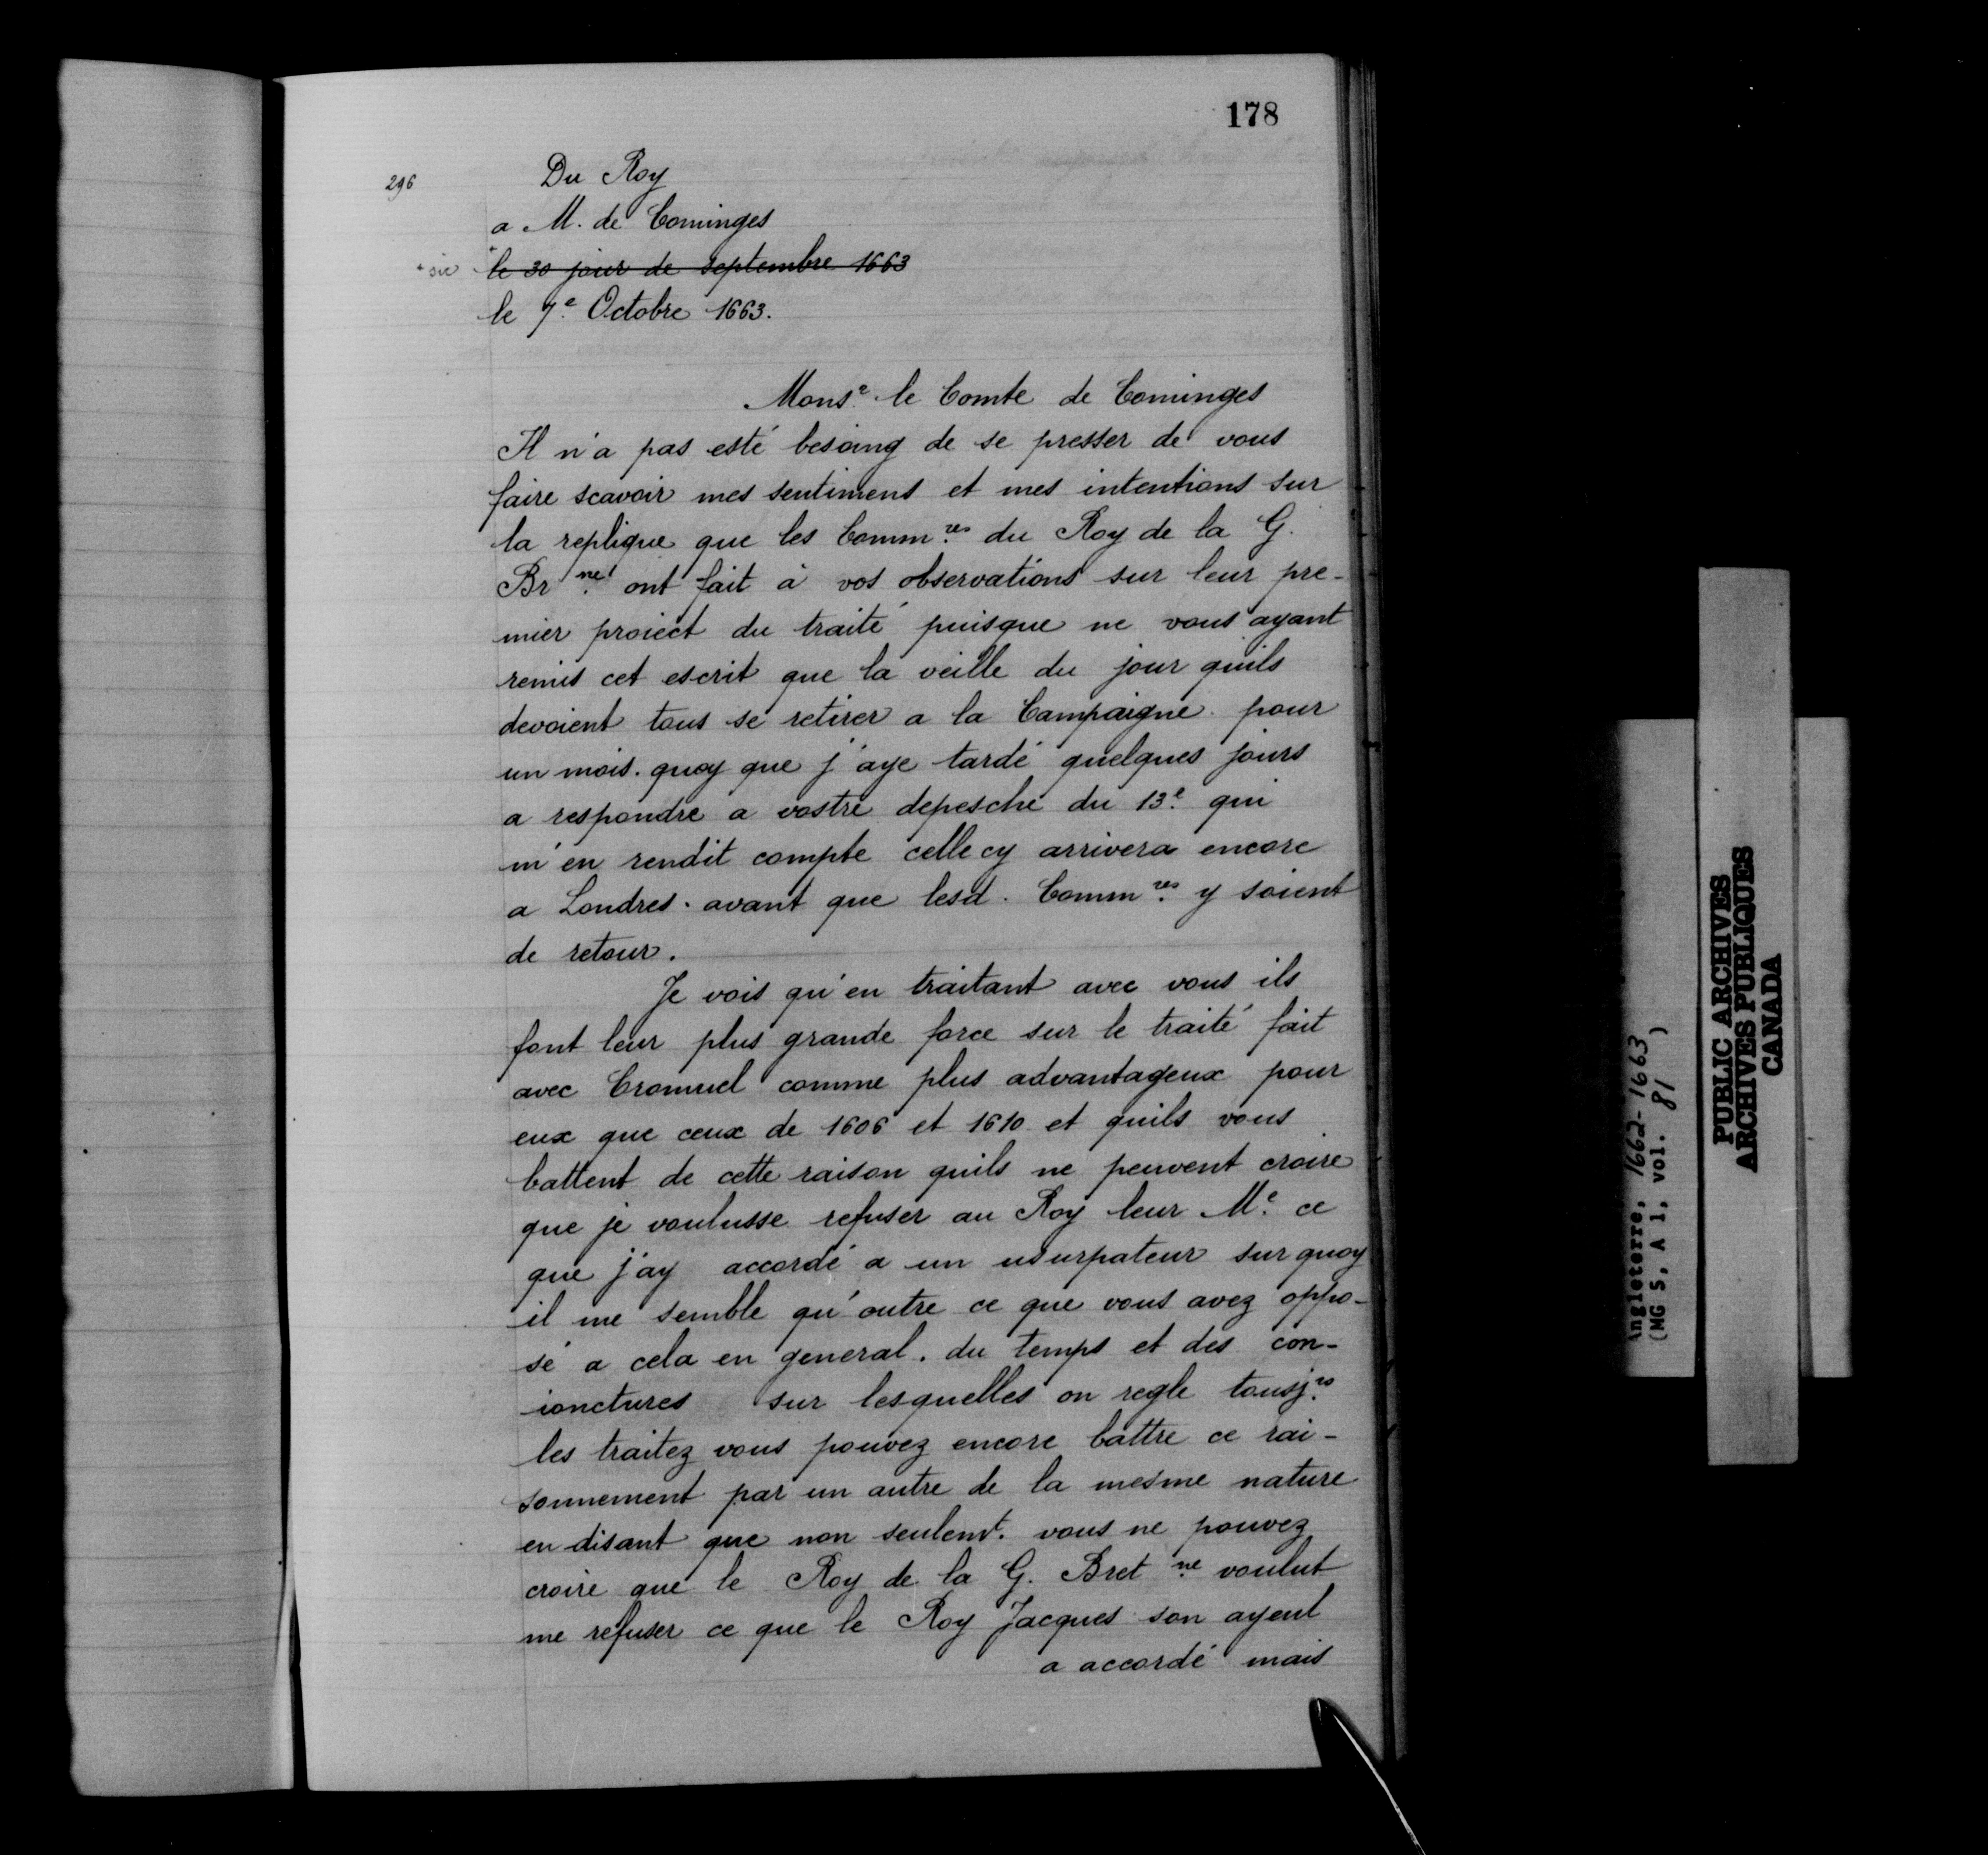 178
296
Du Roy
a M. de Cominges
+ sic
+ le 30 jour de septembre 1663
le 7e Octobre 1663.
Monsr le Comte de Cominges
Il n'a pas esté besoing de se presser de vous
faire scavoir mes sentiment et mes intentions sur
la replique que les Commres du Roy de la G.
Brne ont fait à vos observations sur leur pre-
mier proiect du traité puisque ne vous ayant
remis cet escrit que la veille du jour quils
devoient tous se retirer a la Campaigne pour
un mois. quoy que j'aye tardé quelques jours
a respondre a vostre depesche du 13e qui
m'en rendit compte celle cy arrivera encore
a Londres avant que lesd. Commres y soient
de retour.
Je vois qu'en traitant avec vous ils
font leur plus grande force sur le traité fait
avec Cromuel comme plus advantageux pour
eux que ceux de 1606 et 1610 et quils vous
battent de cette raison quils ne peuvent croire
que je voulusse refuser au Roy leur Me ce
que j'ay accordé a un usurpateur sur quoy
il me semble qu'outre ce que vous avez oppo-
sé a cela en general. du temps et des con-
ionctures sur lesquelles on regle tousjrs
les traitez vous pouvez encore battre ce rai-
sonnement par un autre de la mesme nature
en disant que non seulemt. vous ne pouvez
croire que le Roy de la G. Bretne voulut
me refuser ce que le Roy Jacques son ayeul
a accordé mais
Angleterre, 1662-1663
(MG 5, A 1, vol. 81 )
PUBLIC ARCHIVES
ARCHIVES PUBLIQUES
CANADA